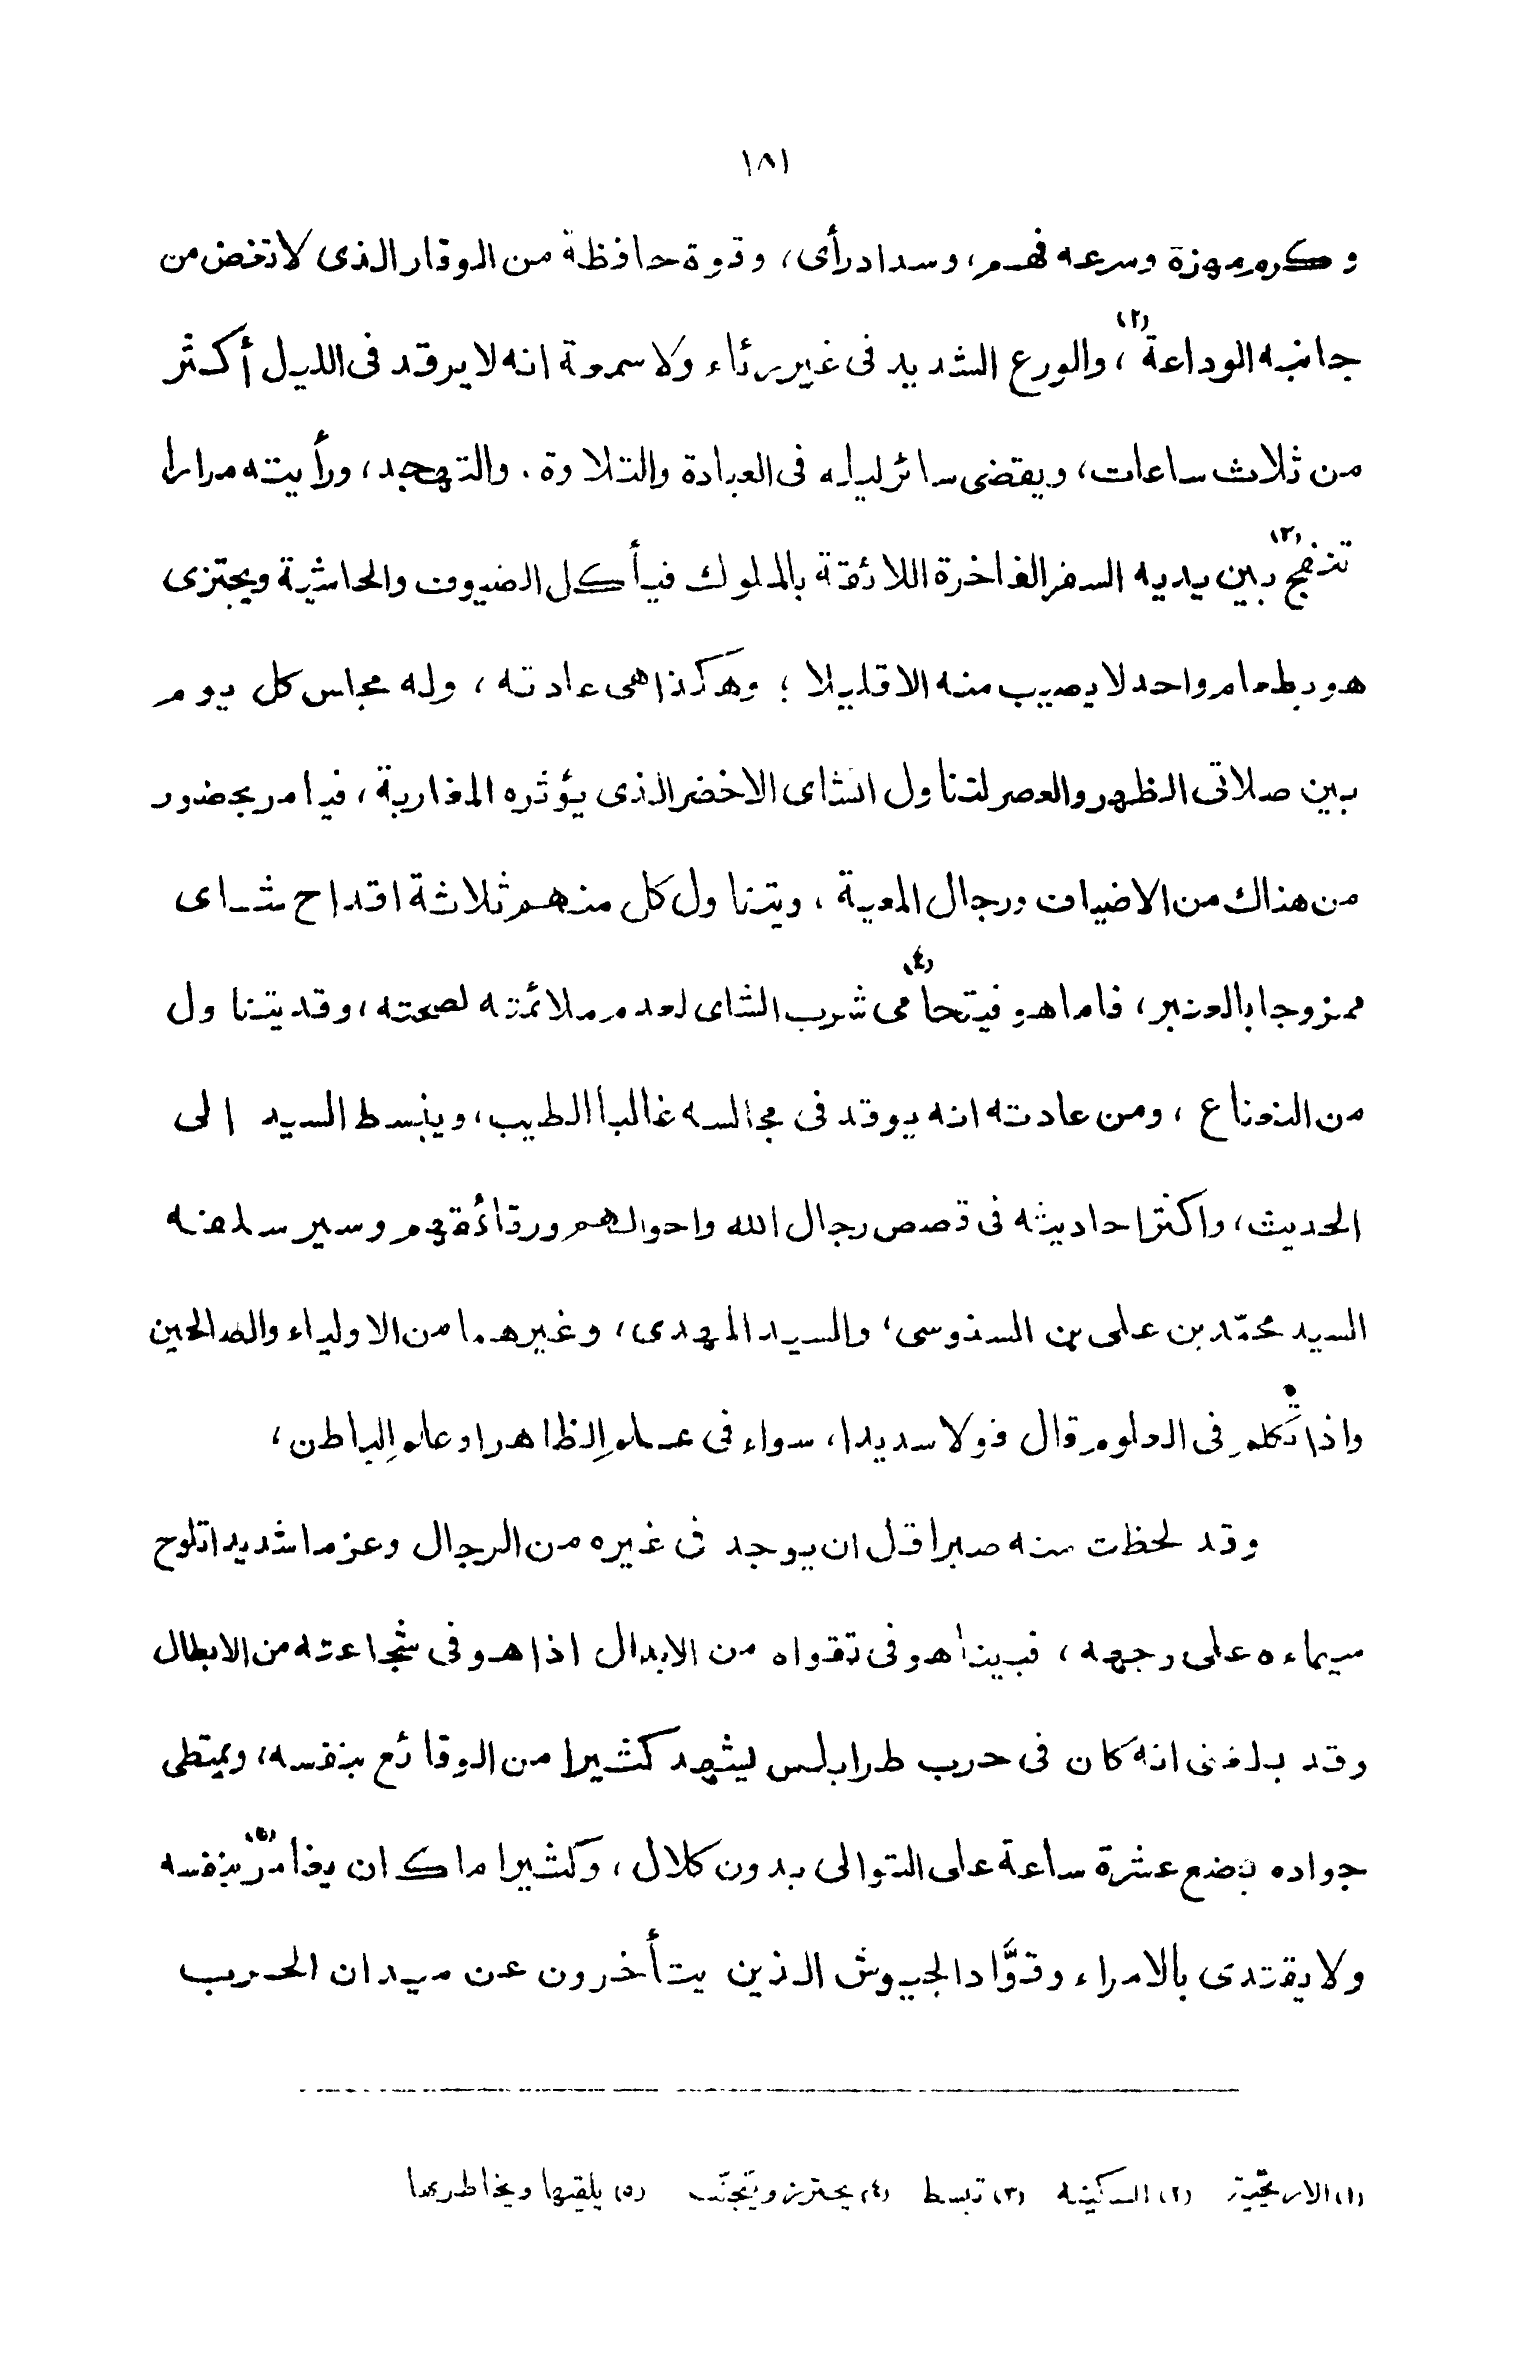 ١٨١
وكرم مهزة وسرعه فهم، وسداد رأى، وقوة حافظة من الوقار الذى لا تغض من
جانبه الوداعة(٢)، والورع الشديد فى غير رئاء ولا سمعة انه لا يرقد فى الليل أكثر
من ثلاث ساعات، ويقضى سائر ليله فى العبادة والتلاوة. والتهجد، ورأيته مرارا
تنفج(٣) بين يديه السفر الفاخرة اللائقة بالملوك فيأكل الضيوف والحاشية ويجتزى
هو بطعام واحد لا يصيب منه الا قليلا؛ وهكذا هى عادته، وله مجلس كل يوم
بين صلاتى الظهر والعصر لتناول الشاى الاخضر الذى يؤثره المغاربة، فيامر بحضور
من هناك من الاضياف ورجال المعية، ويتناول كل منهم ثلاثة اقداح شاى
ممزوجا بالعنبر، فاما هو فيتحامى(٤) شرب الشاى لعدم ملائمته لصحته، وقد يتناول
من النعناع، ومن عادته انه يوقد فى مجالسه غالبا الطيب، وينبسط السيد الى
الحديث، واكثر احاديثه فى قصص رجال الله واحوالهم ورقائقهم وسير سلفه
السيد محمّد بن على بن السنوسى، والسيد المهدى، وغيرهما من الاولياء والصالحين
واذا تكلم فى العلوم قال قولا سديدا، سواء فى علم الظاهر او علم الباطن،
وقد لحظت منه صبرا قل ان يوجد فى غيره من الرجال وعزما شديدا تلوح
سيماءه على وجهه، فبينا هو فى تقواه من الابدال اذا هو فى شجاعته من الابطال
وقد بلغنى انه كان فى حرب طرابلس ليشهد كثيرا من الوقائع بنفسه، ويمتطى
جواده بضع عشرة ساعة على التوالى بدون كلال، وكثيرا ما كان يغامر(٥) بنفسه
ولا يقتدى بالامراء وقوَّاد الجيوش الذين يتأخرون عن ميدان الحرب
(١) الاريحيّة (٢) السكينه (٣) تبسط (٤) يحترز ويتجنّب (٥) يلقيها ويخاطر بها